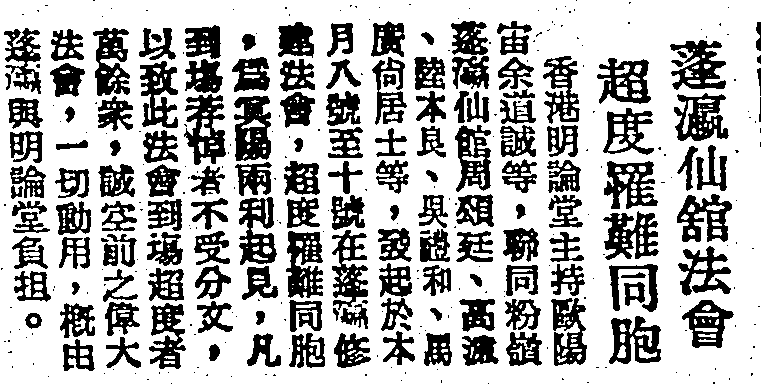 蓬瀛仙舘法會
超度罹難同胞
香港明論堂主持歐陽
宙余道誠等，聯同粉嶺
蓬瀛仙館周頌廷、高濂
、陸本良、吳禮和、馬
廣尙居士等，發起於本
月八號至十號在蓬瀛修
建法會，超度罹難同胞
，爲冥陽兩利起見，凡
到塲荐悼者不受分文，
以致此法會到塲超度者
萬餘衆，誠空前之偉大
法會，一切動用，概由
蓬瀛與明論堂負担。